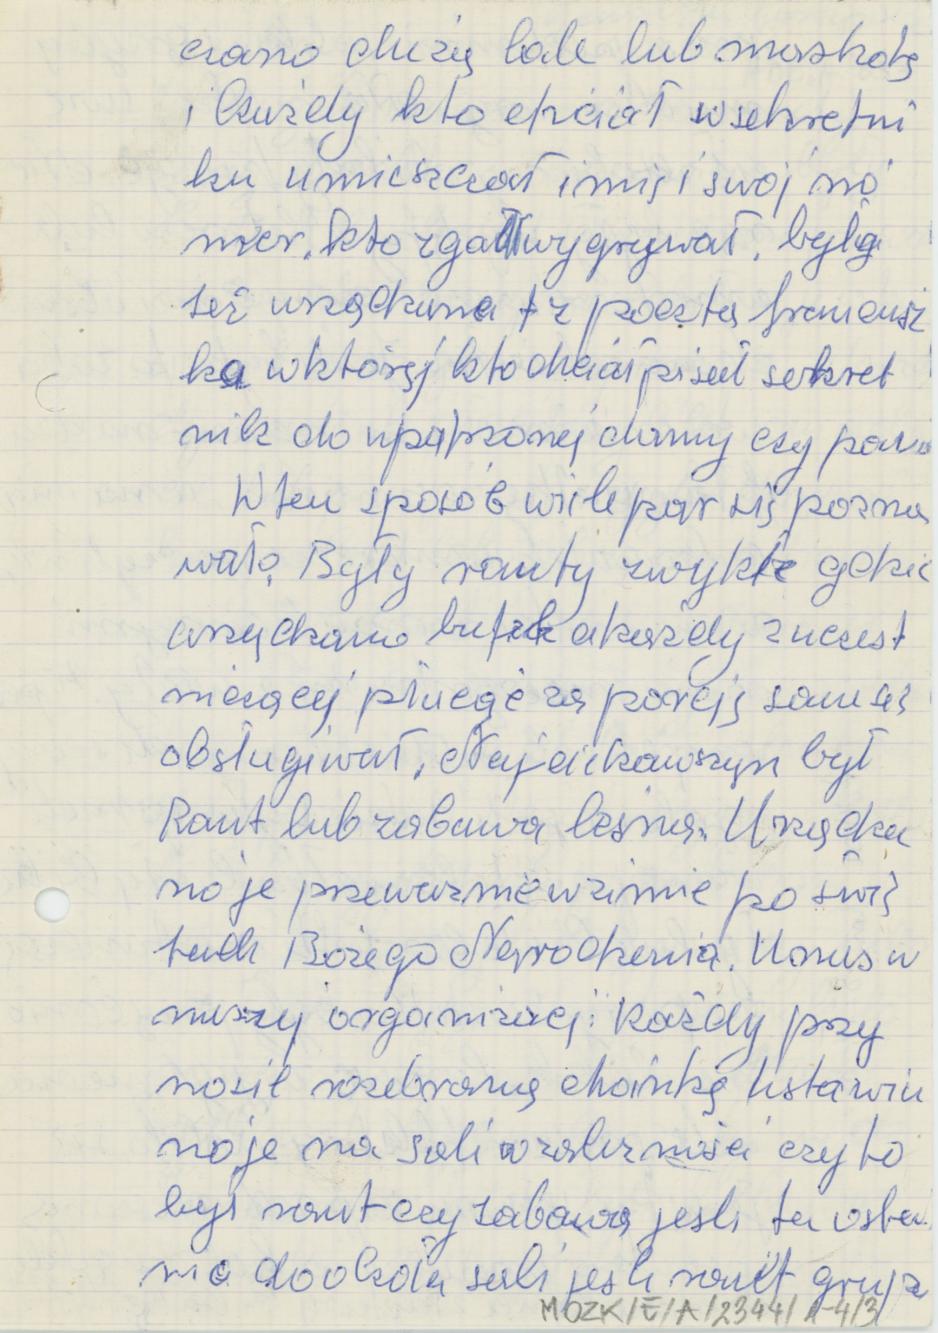 czano dużą lale lub maskotę
i każdy kto chciał w sekretni
ku umieszczał imię i swój nó
mer. kto zgadł wygrywał. była
też urządzana tz poczta francuz
ka w któręj kto chciał pisał sekret
nik do upatrzonej damy czy pana
W ten sposób wiele par się pozna
wało. Były rauty zwykłe gdzie
urządzano bufek a każdy z uczest
niczącej płacąc za porcję sam się
obsługiwał. Najciekawszyn był
Raut lub zabawa leśna. Urządza
no je przeważnie w zimie po świę
tach Bożego Narodzenia. U nas w
naszej organizacj: każdy przy
nosił rozebraną choinkę Ustawia
no je na sali w zależności czy to
był raut czy zabawa jesli ta osta
nio dookoła sali jesli raut grupa
MOZK/E/A/2344/1-4/3/